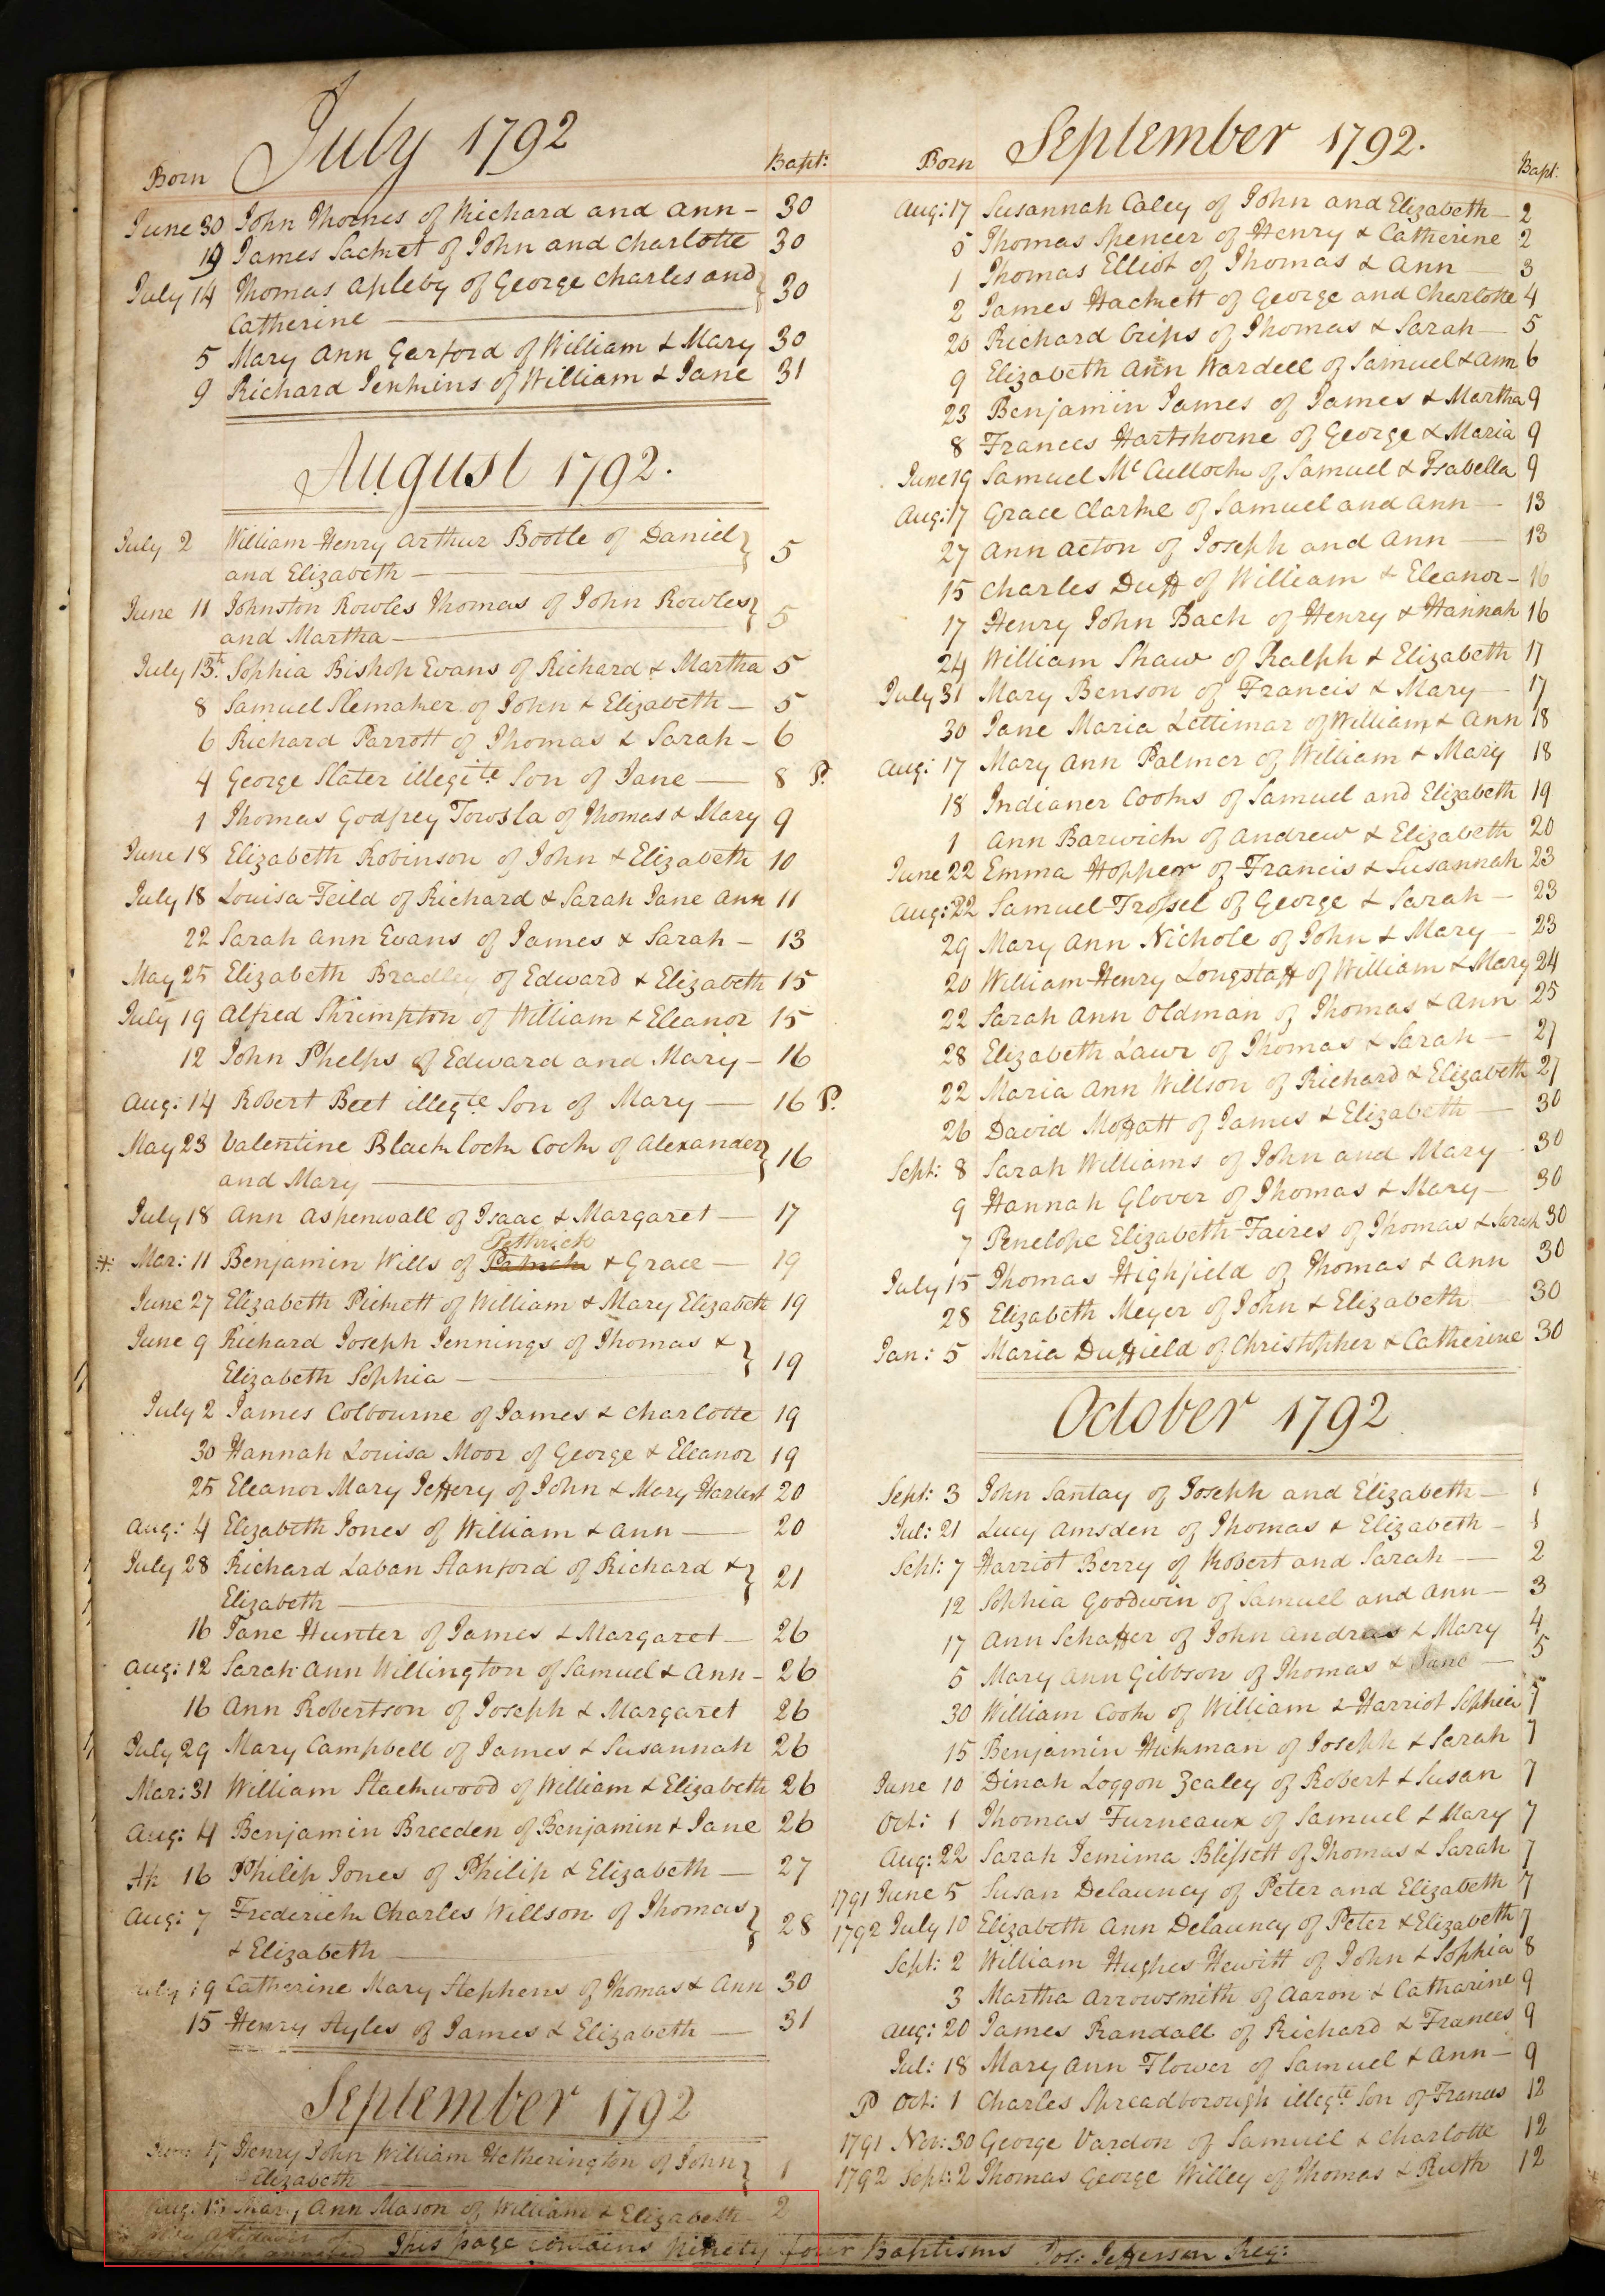 July 1792
Born Bapt:
June 30 John Thornes of Richard and Ann - 30
19 James Sacket of John and Charlotte 30
July 14 Thomas Apleby of George Charles and } 30
Catherine
5 Mary Ann Garford of William & Mary 30
9 Richard Jenkins of William & Jane 31
August 1792.
July 2 William Henry Arthur Bootle of Daniel } 5
and Elizabeth
June 11 Johnston Rowles Thomas of John Rowles } 5
and Martha
July 13th Sophia Bishop Evans of Richard & Martha 5
8 Samuel Slemaker of John & Elizabeth - 5
6 Richard Parrott of Thomas & Sarah - 6
4 George Slater illegite Son of Jane - 8 P.
1 Thomas Godfrey Towsla of Thomas & Mary 9
June 18 Elizabeth Robinson of John & Elizabeth 10
July 18 Louisa Feild of Richard & Sarah Jane Ann 11
22 Sarah Ann Evans of James & Sarah - 13
May 25 Elizabeth Bradley of Edward & Elizabeth 15
July 19 Alfred Shrimpton of William & Eleanor 15
12 John Phelps of Edward and Mary - 16
Aug: 14 Robert Beet illegte Son of Mary - 16 P.
May 23 Valentine Blacklock Cock of Alexander } 16
and Mary
July 18 Ann Aspenwall of Isaac & Margaret - 17
Pethrick
Mar: 11 Benjamin Wills of Patrick & Grace - 19
June 27 Elizabeth Pickett of William & Mary Elizabeth 19
June 9 Richard Joseph Jennings of Thomas & } 19
Elizabeth Sophia
July 2 James Colbourne of James & Charlotte 19
30 Hannah Louisa Moor of George & Eleanor 19
25 Eleanor Mary Jeffery of John & Mary 20
Aug: 4 Elizabeth Jones of William & Ann - 20
July 28 Richard Laban Stanford of Richard & } 21
Elizabeth
16 Jane Hunter of James & Margaret - 26
Aug: 12 Sarah Ann Willington of Samuel & Ann - 26
16 Ann Robertson of Joseph & Margaret 26
July 29 Mary Campbell of James & Susannah 26
Mar: 31 William Stackwood of William & Elizabeth 26
Aug: 4 Benjamin Breeden of Benjamin & Jane 26
Ap 16 Philip Jones of Philip & Elizabeth - 27
Aug: 7 Frederick Charles Willson of Thomas } 28
& Elizabeth
July 19 Catherine Mary Stephens of Thomas & Ann 30
15 Henry Styles of James & Elizabeth - 31
September 1792
17 Henry John William Hetherington of John } 1
Elizabeth
Aug: Ann Mason of William & Elizabeth 2
September 1792.
Born Bapt:
Aug: 17 Susannah Caley of John and Elizabeth - 2
5 Thomas Spencer of Henry & Catherine 2
1 Thomas Elliot of Thomas & Ann 3
2 James Hackett of George and Charlotte 4
20 Richard Crips of Thomas & Sarah - 5
9 Elizabeth Ann Wardell of Samuel & Ann 6
23 Benjamin James of James & Martha 9
8 Frances Hartshorne of George & Maria 9
June 19 Samuel McCulloch of Samuel & Isabella 9
Aug: 17 Grace Clarke of Samuel and Ann - 13
27 Ann Acton of Joseph and Ann - 13
15 Charles Duff of William & Eleanor - 16
17 Henry John Bach of Henry & Hannah 16
24 William Shaw of Ralph & Elizabeth 17
July 31 Mary Benson of Francis & Mary - 17
30 Jane Maria Lettimar of William & Ann 18
Aug: 17 Mary Ann Palmer of William & Mary 18
18 Indianer Cooks of Samuel and Elizabeth 19
1 Ann Barwick of Andrew & Elizabeth 20
June 22 Emma Hopper of Francis & Susannah 23
Aug: 22 Samuel Trossel of George & Sarah - 23
29 Mary Ann Nichole of John & Mary - 23
20 William Henry Longstaff of William & Mary 24
22 Sarah Ann Oldman of Thomas & Ann 25
28 Elizabeth Lawr of Thomas & Sarah - 27
22 Maria Ann Willson of Richard & Elizabeth 27
26 David Moffatt of James & Elizabeth - 30
Sept: 8 Sarah Williams of John and Mary 30
9 Hannah Glover of Thomas & Mary - 30
7 Penelope Elizabeth Faires of Thomas & Sarah 30
July 15 Thomas Highfield of Thomas & Ann 30
28 Elizabeth Meyer of John & Elizabeth 30
Jan: 5 Maria Duffield of Christopher & Catherine 30
October 1792
Sept: 3 John Santay of Joseph and Elizabeth - 1
Jul: 21 Lucy Amsden of Thomas & Elizabeth - 1
Sept: 7 Harriot Berry of Robert and Sarah - 2
12 Sophia Goodwin of Samuel and Ann - 3
17 Ann Schaffer of John Andreas & Mary 4
5 Mary Ann Gibbson of Thomas & Jane - 5
30 William Cook of William & Harriot Sophia 7
15 Benjamin Hickman of Joseph & Sarah 7
June 10 Dinah Loggon Zealey of Robert & Susan 7
Oct: 1 Thomas Furneaux of Samuel & Mary 7
Aug: 22 Sarah Jemima Blissett of Thomas & Sarah 7
1791 June 5 Susan Delauney of Peter and Elizabeth 7
1792 July 10 Elizabeth Ann Delauney of Peter & Elizabeth 7
Sept: 2 William Hughes Hewitt of John & Sophia 8
3 Martha Arrowsmith of Aaron & Catharine 9
Aug: 20 James Randall of Richard & Frances 9
Jul: 18 Mary Ann Flower of Samuel & Ann - 9
P Oct: 1 Charles Spreadborough illegte Son of Frances 12
1791 Nov: 30 George Vardon of Samuel & Charlotte 12
1792 Sept: 2 Thomas George Willey of Thomas & Ruth 12
This page contains Ninety four Baptisms Jos: Jefferson Reg: